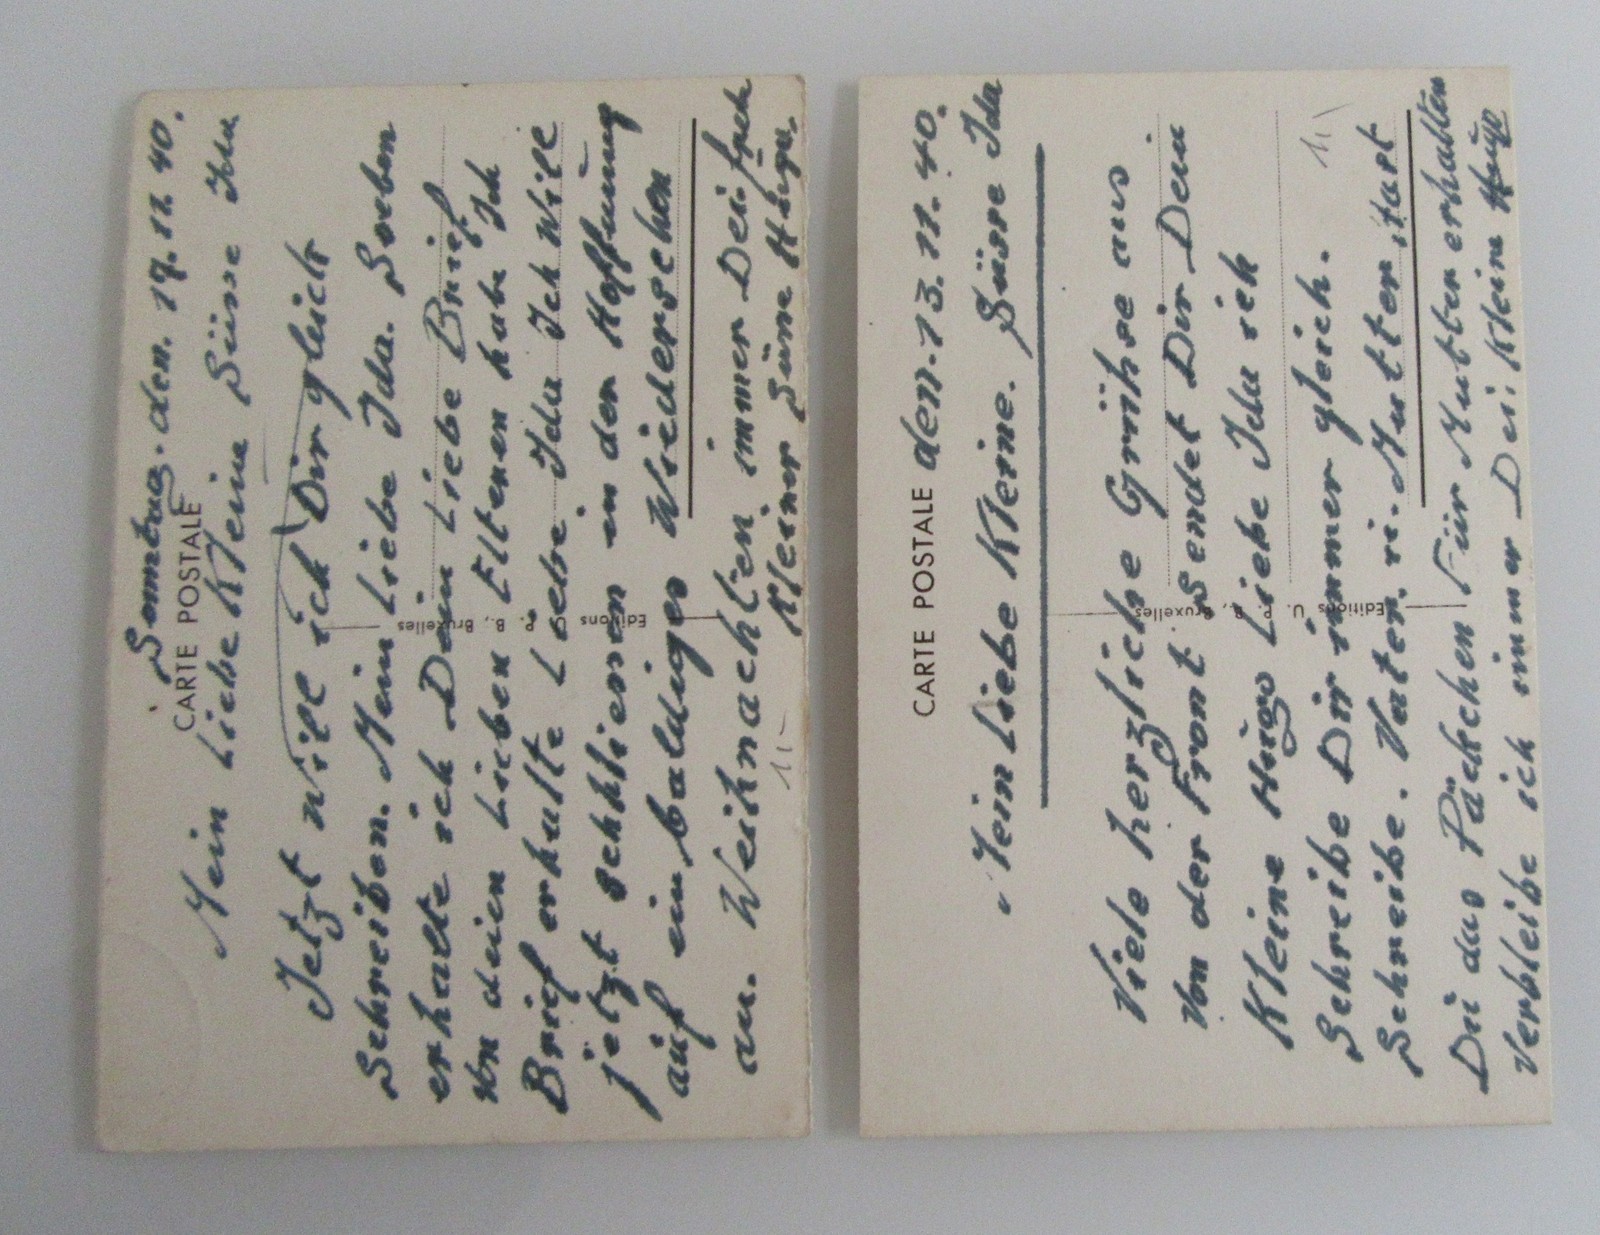 Sonntag. den. 17. 11. 40.
CARTE POSTALE
Mein Liebe Kleine Süsse Ida
Jetzt will ich Dir gleich
Schreiben. Mein Liebe Ida. Soeben
erhalte ich Dein Liebe Brief
Von deien Lieben Elteren habe Ich
Brief erhalte Ida Ich Will
jetzt schliesen in der Hoffnung
auf ein baldiges Wiedersehen
an. Weihnachten immer Dei
Kleiner Süsse
Editions U. P. B., Bruxelles
11-
CARTE POSTALE den. 13. 11. 40.
Mein Liebe Kleine. Süsse Ida
Viele herzliche Grühse aus
Von der Front Sendet Dir Dein
Kleine Hugo Liebe Ida ich
Schreibe Dir immer gleich.
Schreibe. Vater. u. Mutter
Du das Päckchen Für Mutter erhalten
Verbleibe ich immer Dei Kleine
Editions U. P. B., Bruxelles
11